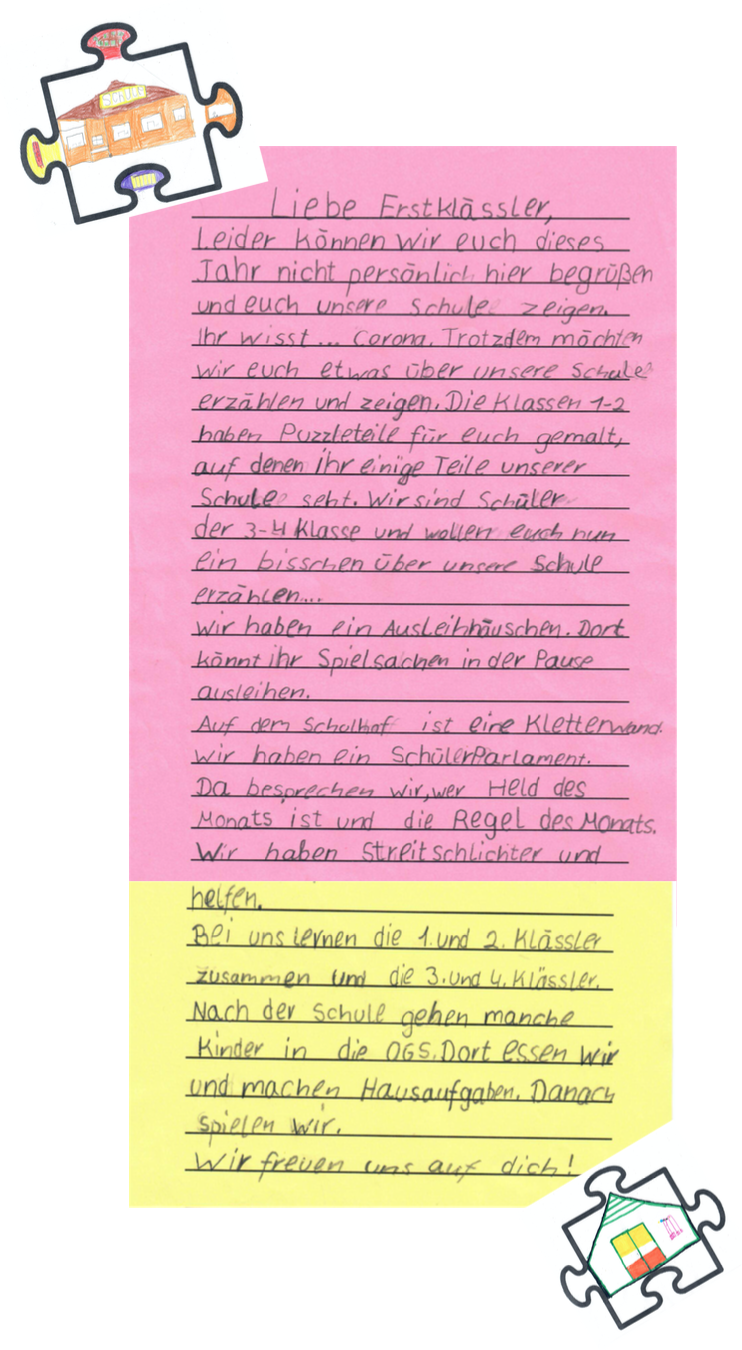 SCHULE
Liebe Erstklässler,
Leider können wir euch dieses
Jahr nicht persönlich hier begrüßen
und euch unsere Schule zeigen.
Ihr wisst... Corona. Trotzdem möchten
wir euch etwas über unsere Schule
erzählen und zeigen. Die Klassen 1-2
haben Puzzleteile für euch gemalt,
auf denen ihr einige Teile unserer
Schule seht. Wir sind Schüler
der 3-4 Klasse und wollen euch nun
ein bisschen über unsere Schule
erzählen...
Wir haben ein Ausleihhäuschen. Dort
könnt ihr Spielsachen in der Pause
ausleihen.
Auf dem Schulhof ist eine Kletterwand.
Wir haben ein SchülerParlament.
Da besprechen wir, wer Held des
Monats ist und die Regel des Monats.
Wir haben Streitschlichter und
helfen.
Bei uns lernen die 1. und 2. Klässler
zusammen und die 3. und 4. Klässler.
Nach der Schule gehen manche
Kinder in die OGS. Dort essen wir
und machen Hausaufgaben. Danach
spielen wir.
Wir freuen uns auf dich!